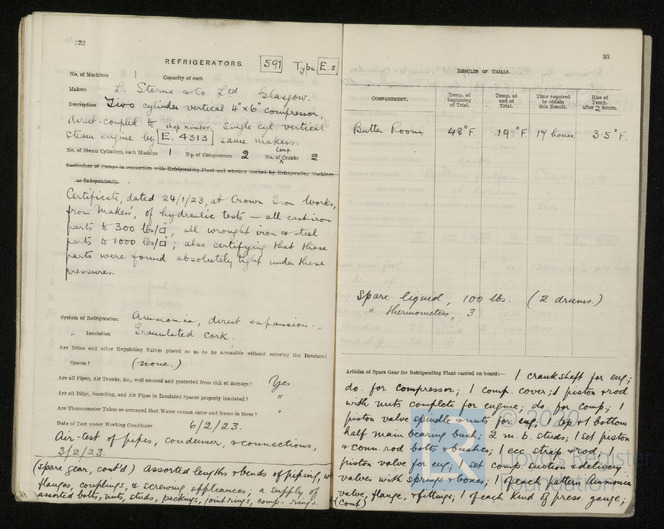 132
REFRIGERATORS. 591 Type E.s
No. of Machines 1 Capacity of each
Makers L. Sterne & Co Ltd Glasgow.
Description Two cylinder vertical 4" x 6" compressor,
direct-coupled to shop number single cyl vertical
steam engine by E. 4313 same makers.
No. of Steam Cylinders, each Machine 1 No. of Compressors 2 No. of Comp. Cranks 2
Particulars of Pumps in connection with Refrigerating Plant and whether worked by Refrigerating Machines
or Independently.
Certificate, dated 24/1/23, at Crown Iron Works,
from Makers, of hydraulic tests — all cast-iron
parts to 300 lbs/□", all wrought iron & steel
parts to 1000 lbs/□"; also certifying that these
parts were found absolutely tight under these
pressures.
System of Refrigeration Ammonia, direct expansion.
" Insulation Granulated cork.
Are Brine and other Regulating Valves placed so as to be accessible without entering the Insulated
Spaces? (none.)
Are all Pipes, Air Trunks, &c., well secured and protected from risk of damage? Yes
Are all Bilge, Sounding, and Air Pipes in Insulated Spaces properly insulated? "
Are Thermometer Tubes so arranged that Water cannot enter and freeze in them?
Date of Test under Working Conditions 6/2/23.
Air-test of pipes, condenser, & connections,
3/2/23.
(spare gear, cont'd) assorted lengths & bends of piping, w
flanges, couplings, & screwing appliances; a supply of
assorted bolts, nuts, studs, packings, joint rings, comp. rings.
33
RESULTS OF TRIALS.
COMPARTMENT. Temp. at beginning of Trial. Temp. at end of Trial. Time required to obtain this Result. Rise of Temp. after 2 hours.
Butter Room 48°F. 19°F. 17 hours. 35°F.
Spare liquid, 100 lbs. (2 drums.)
" thermometers, 3
Articles of Spare Gear for Refrigerating Plant carried on board:— 1 crankshaft for eng;
do. for compressor; 1 comp. cover; 1 piston & rod
with nuts complete for engine; do. for comp; 1
piston valve spindle & nuts for eng; top & bottom
half main bearing bush; 2 m.b. studs; 1 set piston
& conn. rod bolts & bushes; 1 ecc. strap & rod,
piston valve for eng; set comp suction & delivery
valves with springs & boxes; 1 of each pattern ammonia
valve, flange, & fittings; 1 of each kind of press. gauge;
(cont)
© 2020
Lloyd's Register
Foundation